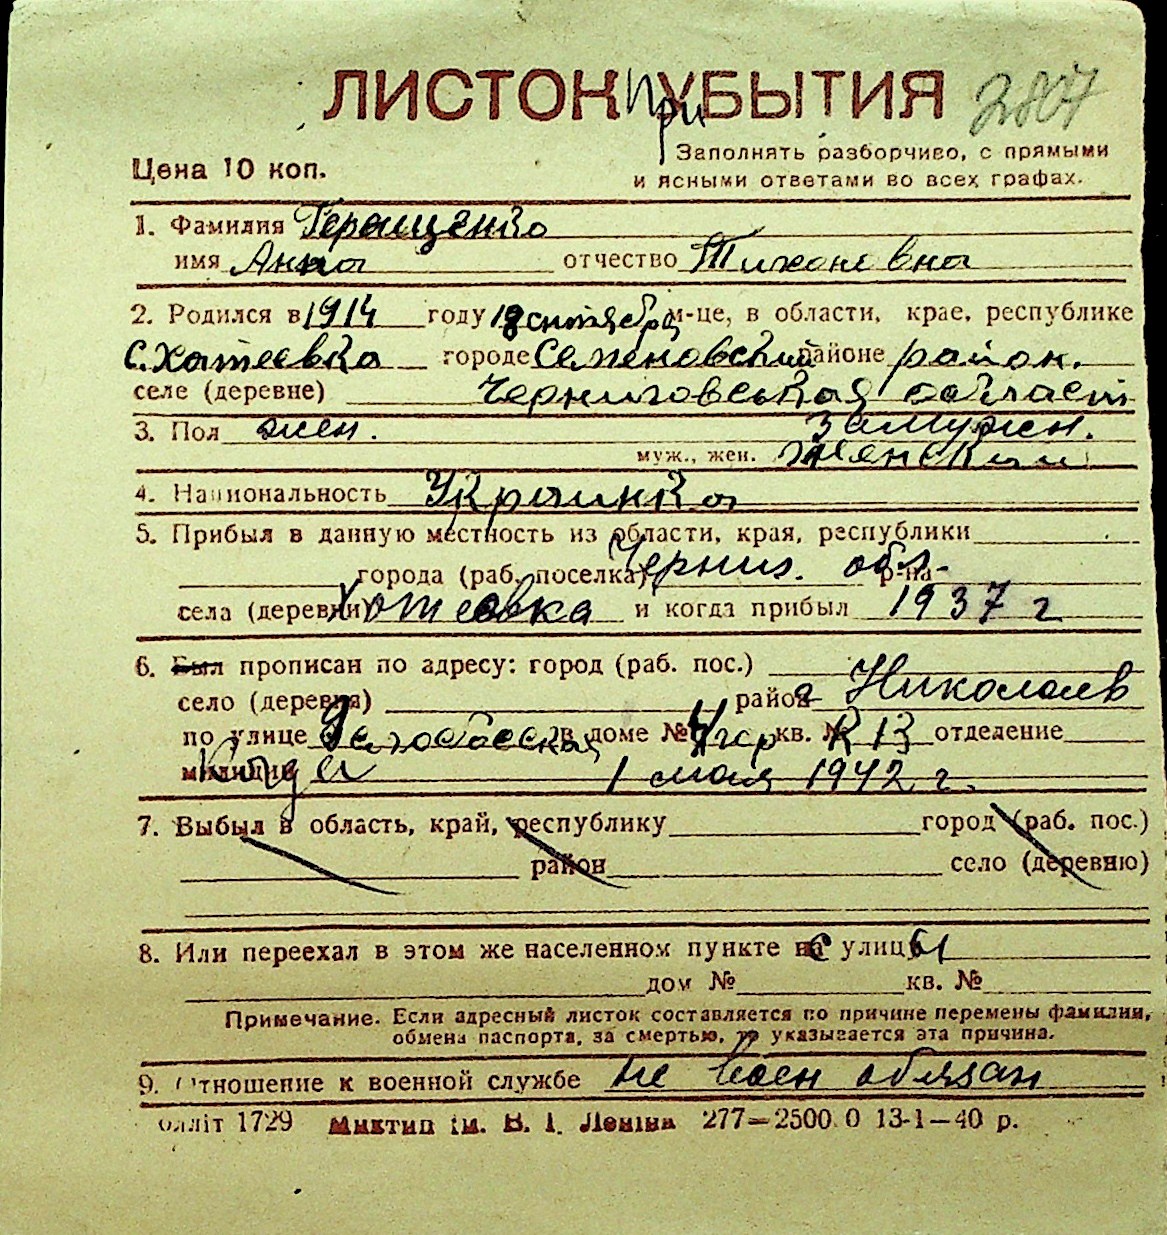 ЛИСТОК при УБЫТИЯ 2807
Цена 10 коп.
Заполнять разборчиво, с прямыми
и ясными ответами во всех графах.
1. Фамилия Геращенко
имя Анна отчество Тихоновна
2. Родился в 1914 году 18 сентября м-це, в области, крае, республике
с. Хотеевка городе Семеновский районе район.
селе (деревне) Черниговская област
3. Пол жен. замужен.
муж., жен. женский
4. Национальность Украинка
5. Прибыл в данную местность из области, края, республики
города (раб. поселка) Черниг. обл. р-на
села (деревни) Хотеевка и когда прибыл 1937 г
6. Был прописан по адресу: город (раб. пос.)
село (деревня) район г Николаев
по улице в доме № кв. № 13 отделение
милиции 1 мая 1942 г.
7. Выбыл в область, край, республику город (раб. пос.)
район село (деревню)
8. Или переехал в этом же населенном пункте на улицу 61
дом № кв. №
Примечание. Если адресный листок составляется по причине перемены фамилии,
обмена паспорта, за смертью, то указывается эта причина.
9. Отношение к военной службе не воен обязан
олліт 1729 Миктип ім. В. І. Леніна 277—2500 0 13-1—40 р.